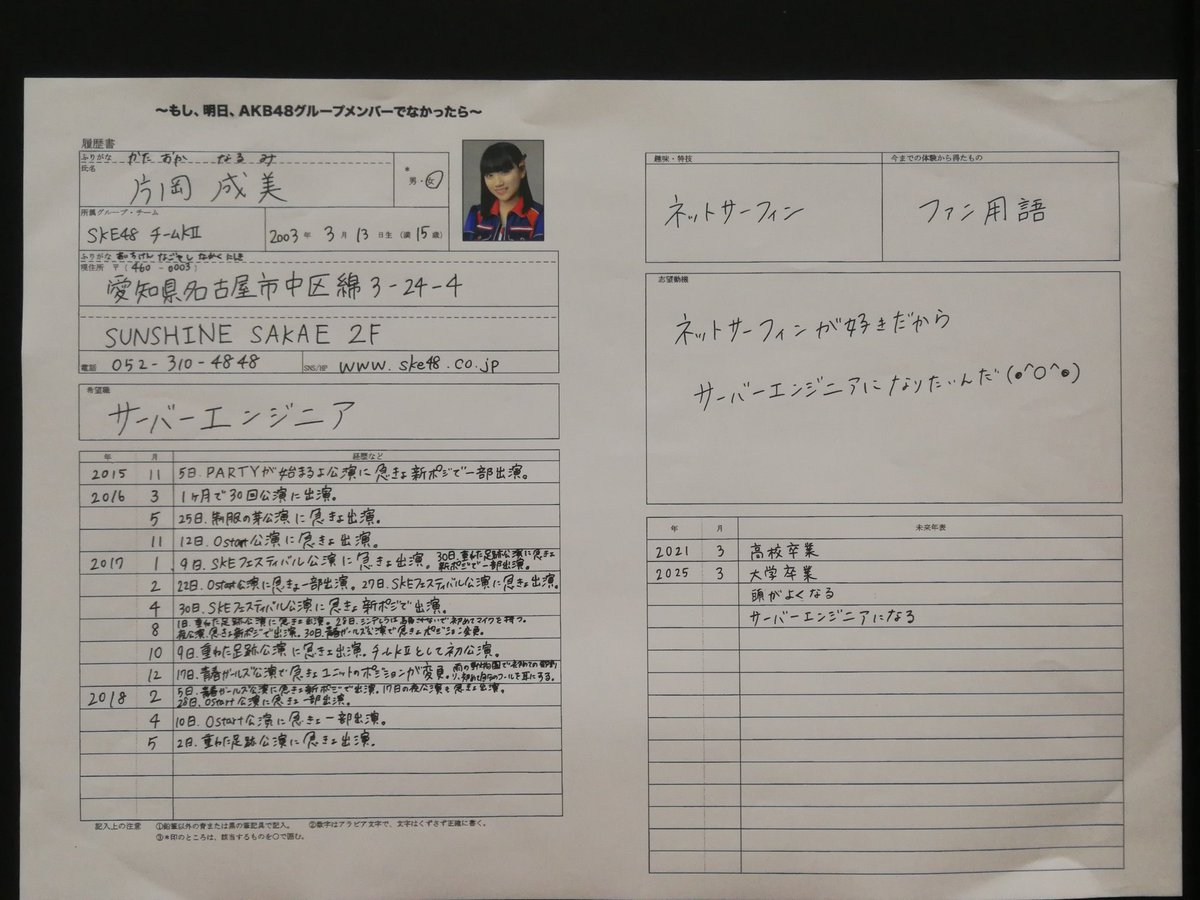 ～もし、明日、AKB48グループメンバーでなかったら～
履歴書
ふりがな かた おか なる み
氏名 片岡 成美
* 男・女
所属グループ・チーム
SKE48 チームKⅡ
2003年 3月 13日生 (満 15歳)
ふりがな あいちけん なごやし なかく にしき
現住所 〒(460-0003)
愛知県名古屋市中区錦3-24-4
SUNSHINE SAKAE 2F
電話 052-310-4848 SNS/HP www.ske48.co.jp
希望職
サーバーエンジニア
年 月 経歴など
2015 11 5日、PARTYが始まるよ公演に急きょ新ポジで一部出演。
2016 3 1ヶ月で30回公演に出演。
5 25日、制服の芽公演に急きょ出演。
11 12日、0start公演に急きょ出演。
2017 1 9日、SKEフェスティバル公演に急きょ出演。30日、重ねた足跡公演に急きょ新ポジで一部出演。
2 22日、0start公演に急きょ一部出演。27日、SKEフェスティバル公演に急きょ出演。
4 30日、SKEフェスティバル公演に急きょ新ポジで出演。
8 1日、重ねた足跡公演に急きょ出演。28日、シンデレラは騙されないで初めてマイクを持つ。
夜公演、急きょ新ポジで出演。30日、青春ガールズ公演で急きょポジション変更。
10 9日、重ねた足跡公演に急きょ出演。チームKⅡとして初公演。
12 17日、青春ガールズ公演で急きょユニットのポジションが変更。雨の動物園で初めての
コールを耳にする。
2018 2 5日、青春ガールズ公演に急きょ新ポジで出演。17日の夜公演も急きょ出演。
28日、0start公演に急きょ一部出演。
4 10日、0start公演に急きょ一部出演。
5 2日、重ねた足跡公演に急きょ出演。
記入上の注意 ①鉛筆以外の青または黒の筆記具で記入。 ②数字はアラビア文字で、文字はくずさず正確に書く。
③*印のところは、該当するものを○で囲む。
趣味・特技
ネットサーフィン
今までの体験から得たもの
ファン用語
志望動機
ネットサーフィンが好きだから
サーバーエンジニアになりたいんだ(●^O^●)
年 月 未来年表
2021 3 高校卒業
2025 3 大学卒業
頭がよくなる
サーバーエンジニアになる